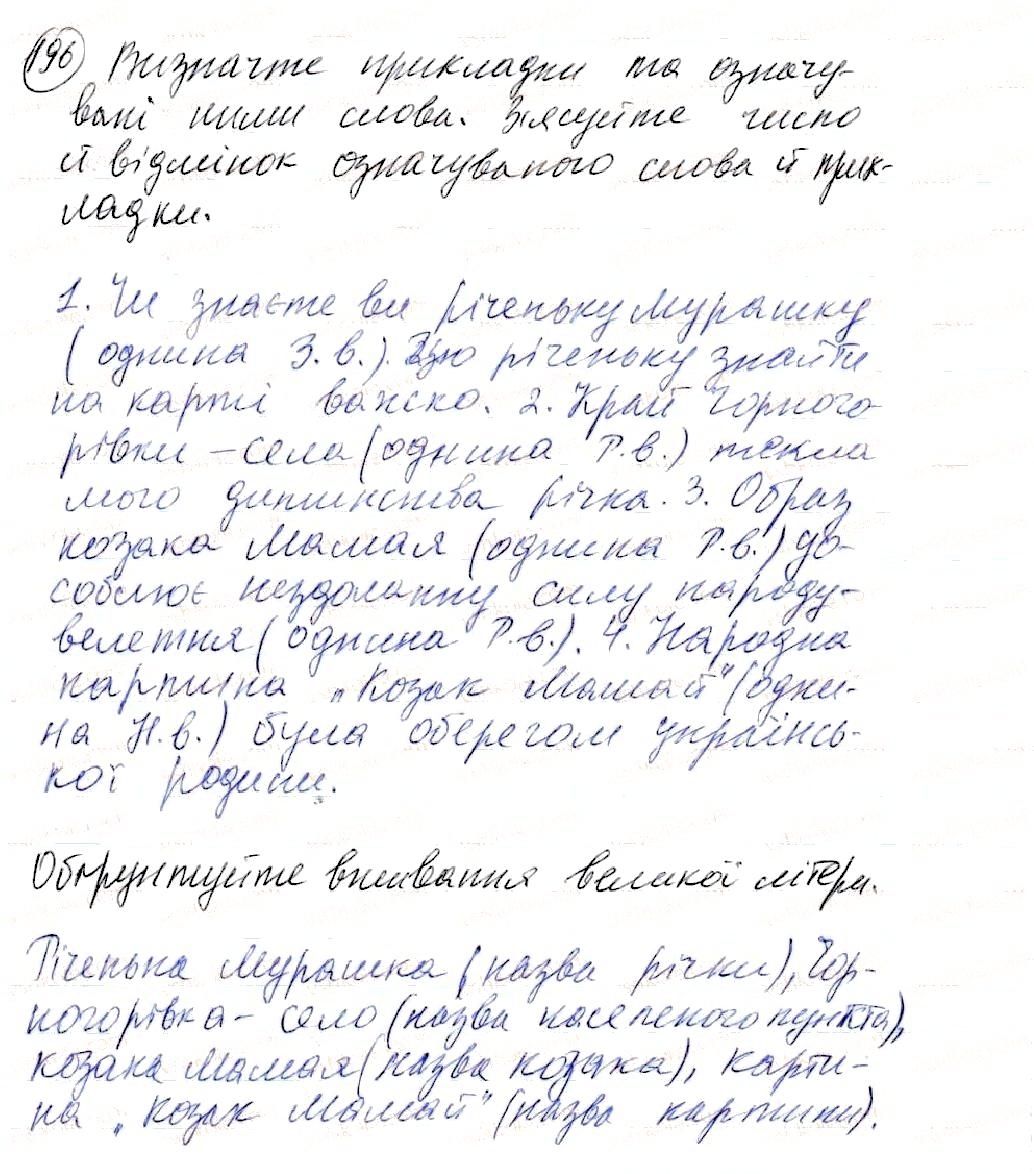 196 Визначте прикладки та означу-
вані ними слова. З'ясуйте число
й відмінок означуваного слова й прик-
ладки.
1. Чи знаєте ви річеньку Мурашку
(однина З.в.). Цю річеньку знайти
на карті важко. 2. Край Чорного-
рівки – села (однина Р.в.) текла
мого дитинства річка. 3. Образ
козака Мамая (однина Р.в.) уо-
соблює нездоланну силу народу-
велетня (однина Р.в.). 4. Народна
картина „Козак Мамай" (одни-
на Н.в.) була оберегом українсь-
кої родини.
Обґрунтуйте вживання великої літери.
Річенька Мурашка (назва річки), Чор-
ногорівка – село (назва населеного пункта),
козака Мамая (назва козака), карти-
на „Козак Мамай" (назва картини).